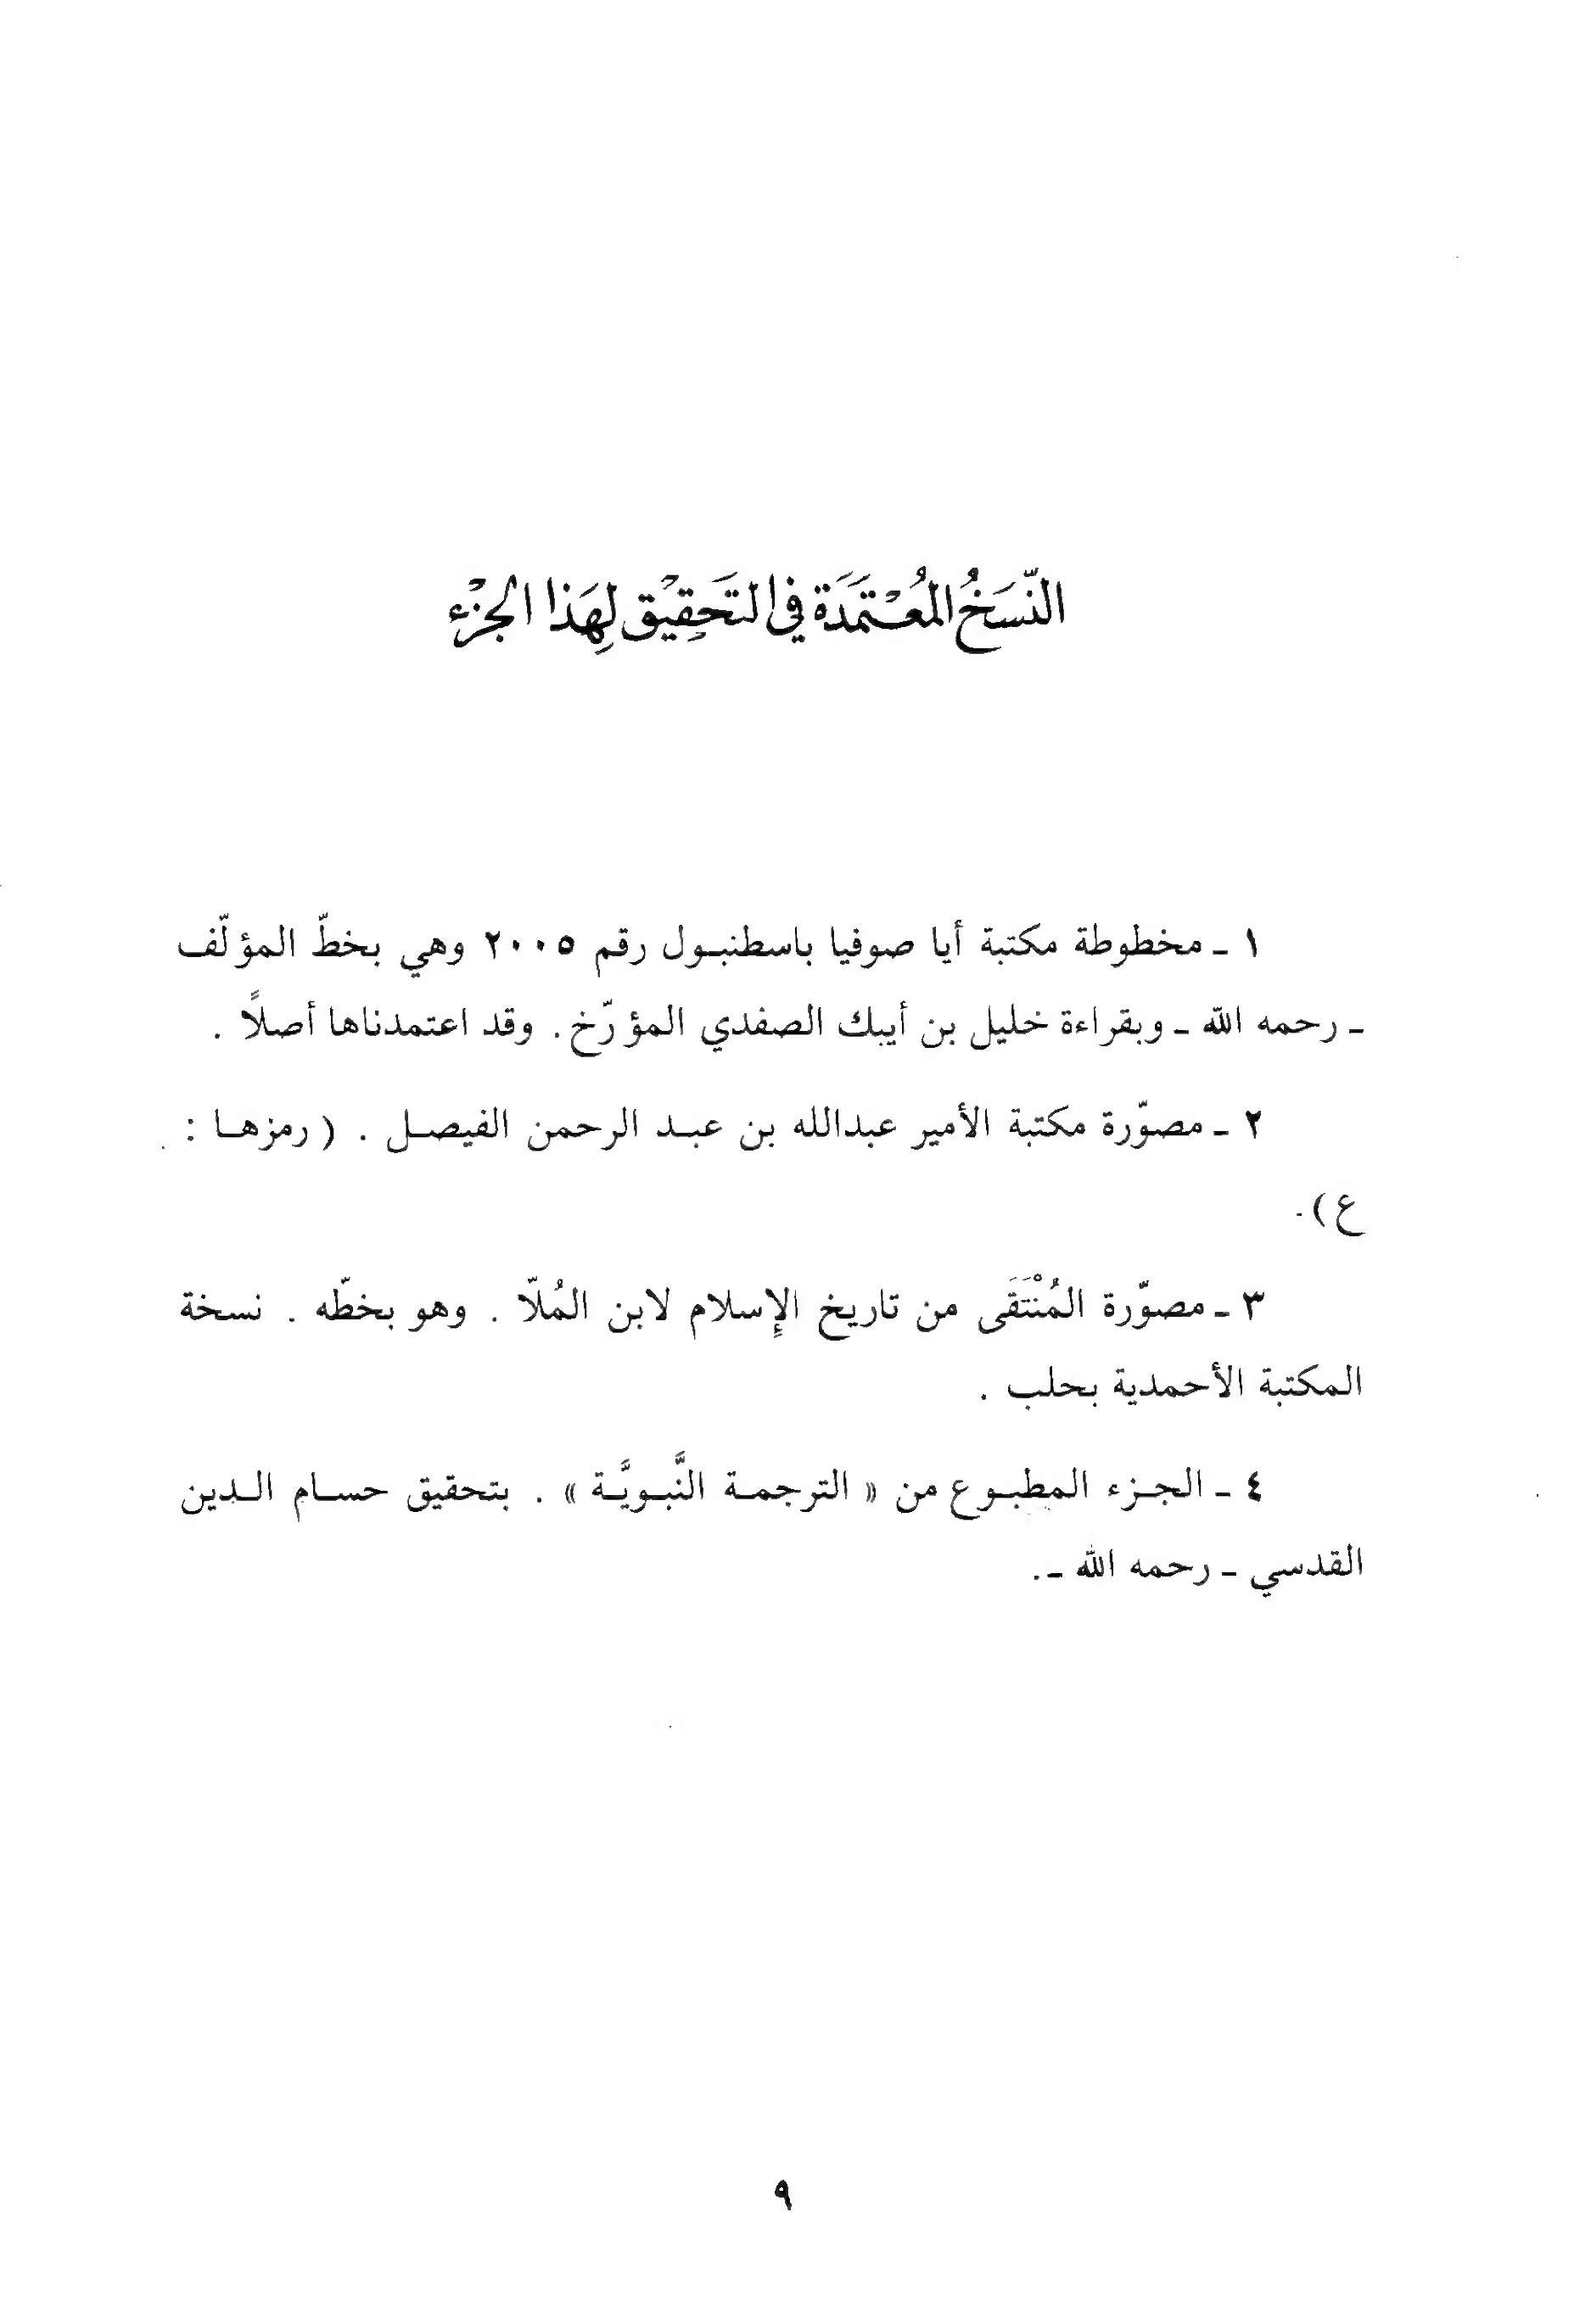 النّسَخُ المُعْتَمَدَة في التَحقِيْق لِهَذا الجزْء
١ ـ مخطوطة مكتبة أيا صوفيا باسطنبول رقم ٢٠٠٥ وهي بخطّ المؤلّف
ـ رحمه الله ـ وبقراءة خليل بن أيبك الصفدي المؤرّخ. وقد اعتمدناها أصلاً .
٢ ـ مصوّرة مكتبة الأمير عبدالله بن عبد الرحمن الفيصل . ( رمزها :
ع ).
٣ ـ مصوّرة المُنْتَقَى من تاريخ الإسلام لابن المُلّا . وهو بخطّه . نسخة
المكتبة الأحمدية بحلب .
٤ ـ الجزء المطبوع من « الترجمة النَّبويَّة » . بتحقيق حسام الدين
القدسي ـ رحمه الله ـ.
٩